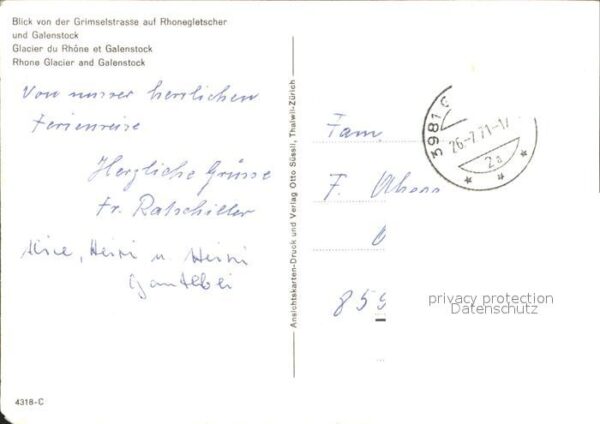 Blick von der Grimselstrasse auf Rhonegletscher
und Galenstock
Glacier du Rhône et Galenstock
Rhone Glacier and Galenstock
Von unsrer herrlichen
Ferienreise
Herzliche Grüsse
Fr. Ratschiller
Heini u. Heini
Ansichtskarten-Druck und Verlag Otto Süssli, Thalwil-Zürich
Fam.
F.
3981
26.-7.71-17
2a
privacy protection
Datenschutz
4318-C